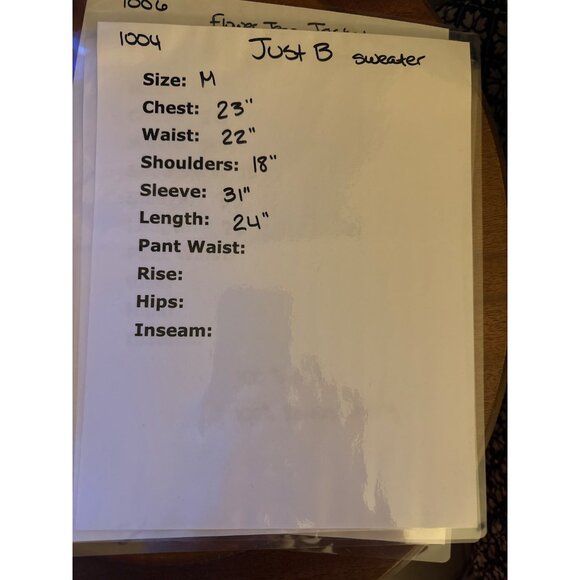 1006
1004 Just B sweater
Size: M
Chest: 23"
Waist: 22"
Shoulders: 18"
Sleeve: 31"
Length: 24"
Pant Waist:
Rise:
Hips:
Inseam: